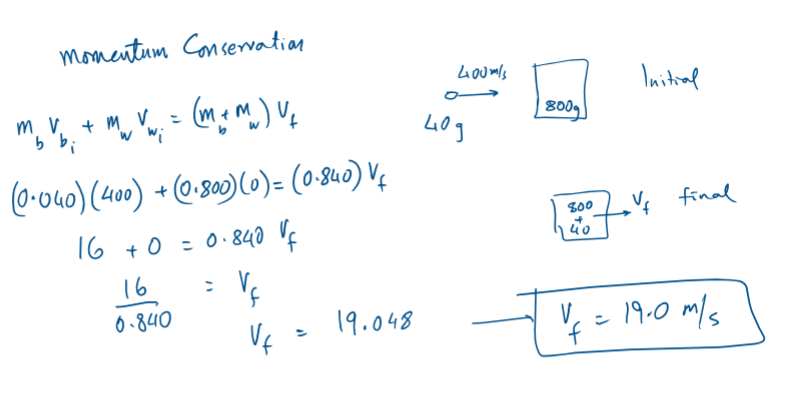 Momentum Conservation
m_b V_{b_i} + m_w V_{w_i} = (m_b + m_w) V_f
(0.040)(400) + (0.800)(0) = (0.840) V_f
16 + 0 = 0.840 V_f
16/0.840 = V_f
V_f = 19.048
400 m/s
40g
800g
Initial
800 + 40
V_f
final
V_f = 19.0 m/s